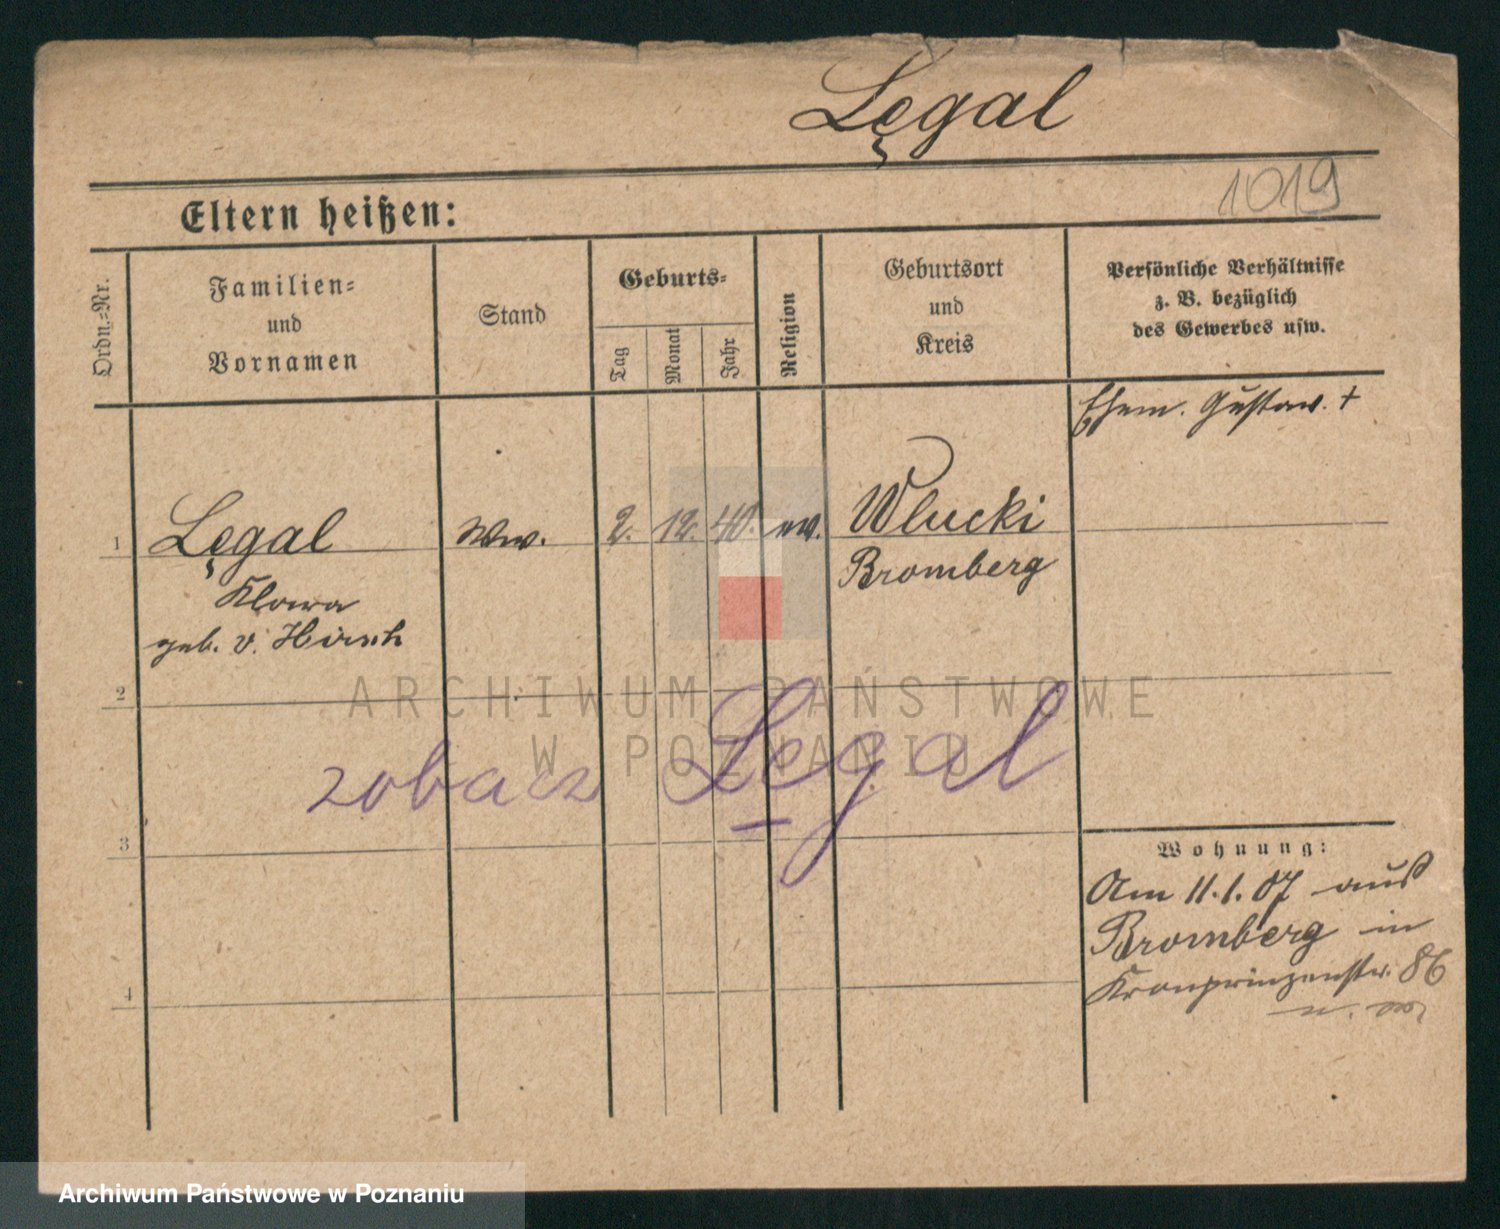 Lęgal
1019
Eltern heißen:
Ordn.-Nr.
Familien-
und
Vornamen
Stand
Geburts-
Tag
Monat
Jahr
Religion
Geburtsort
und
Kreis
Persönliche Verhältnisse
z. B. bezüglich
des Gewerbes usw.
Ehem. Gustav. +
1 Lęgal Ww. 2. 12. 40. ev. Wlucki
Klara Bromberg
geb. v. Hirsch
2
ARCHIWUM PAŃSTWOWE
W POZNANIU
zobacz Legal
3
Wohnung:
Am 11.1.07 aus
Bromberg in
Kronprinzenstr. 86
4
Archiwum Państwowe w Poznaniu